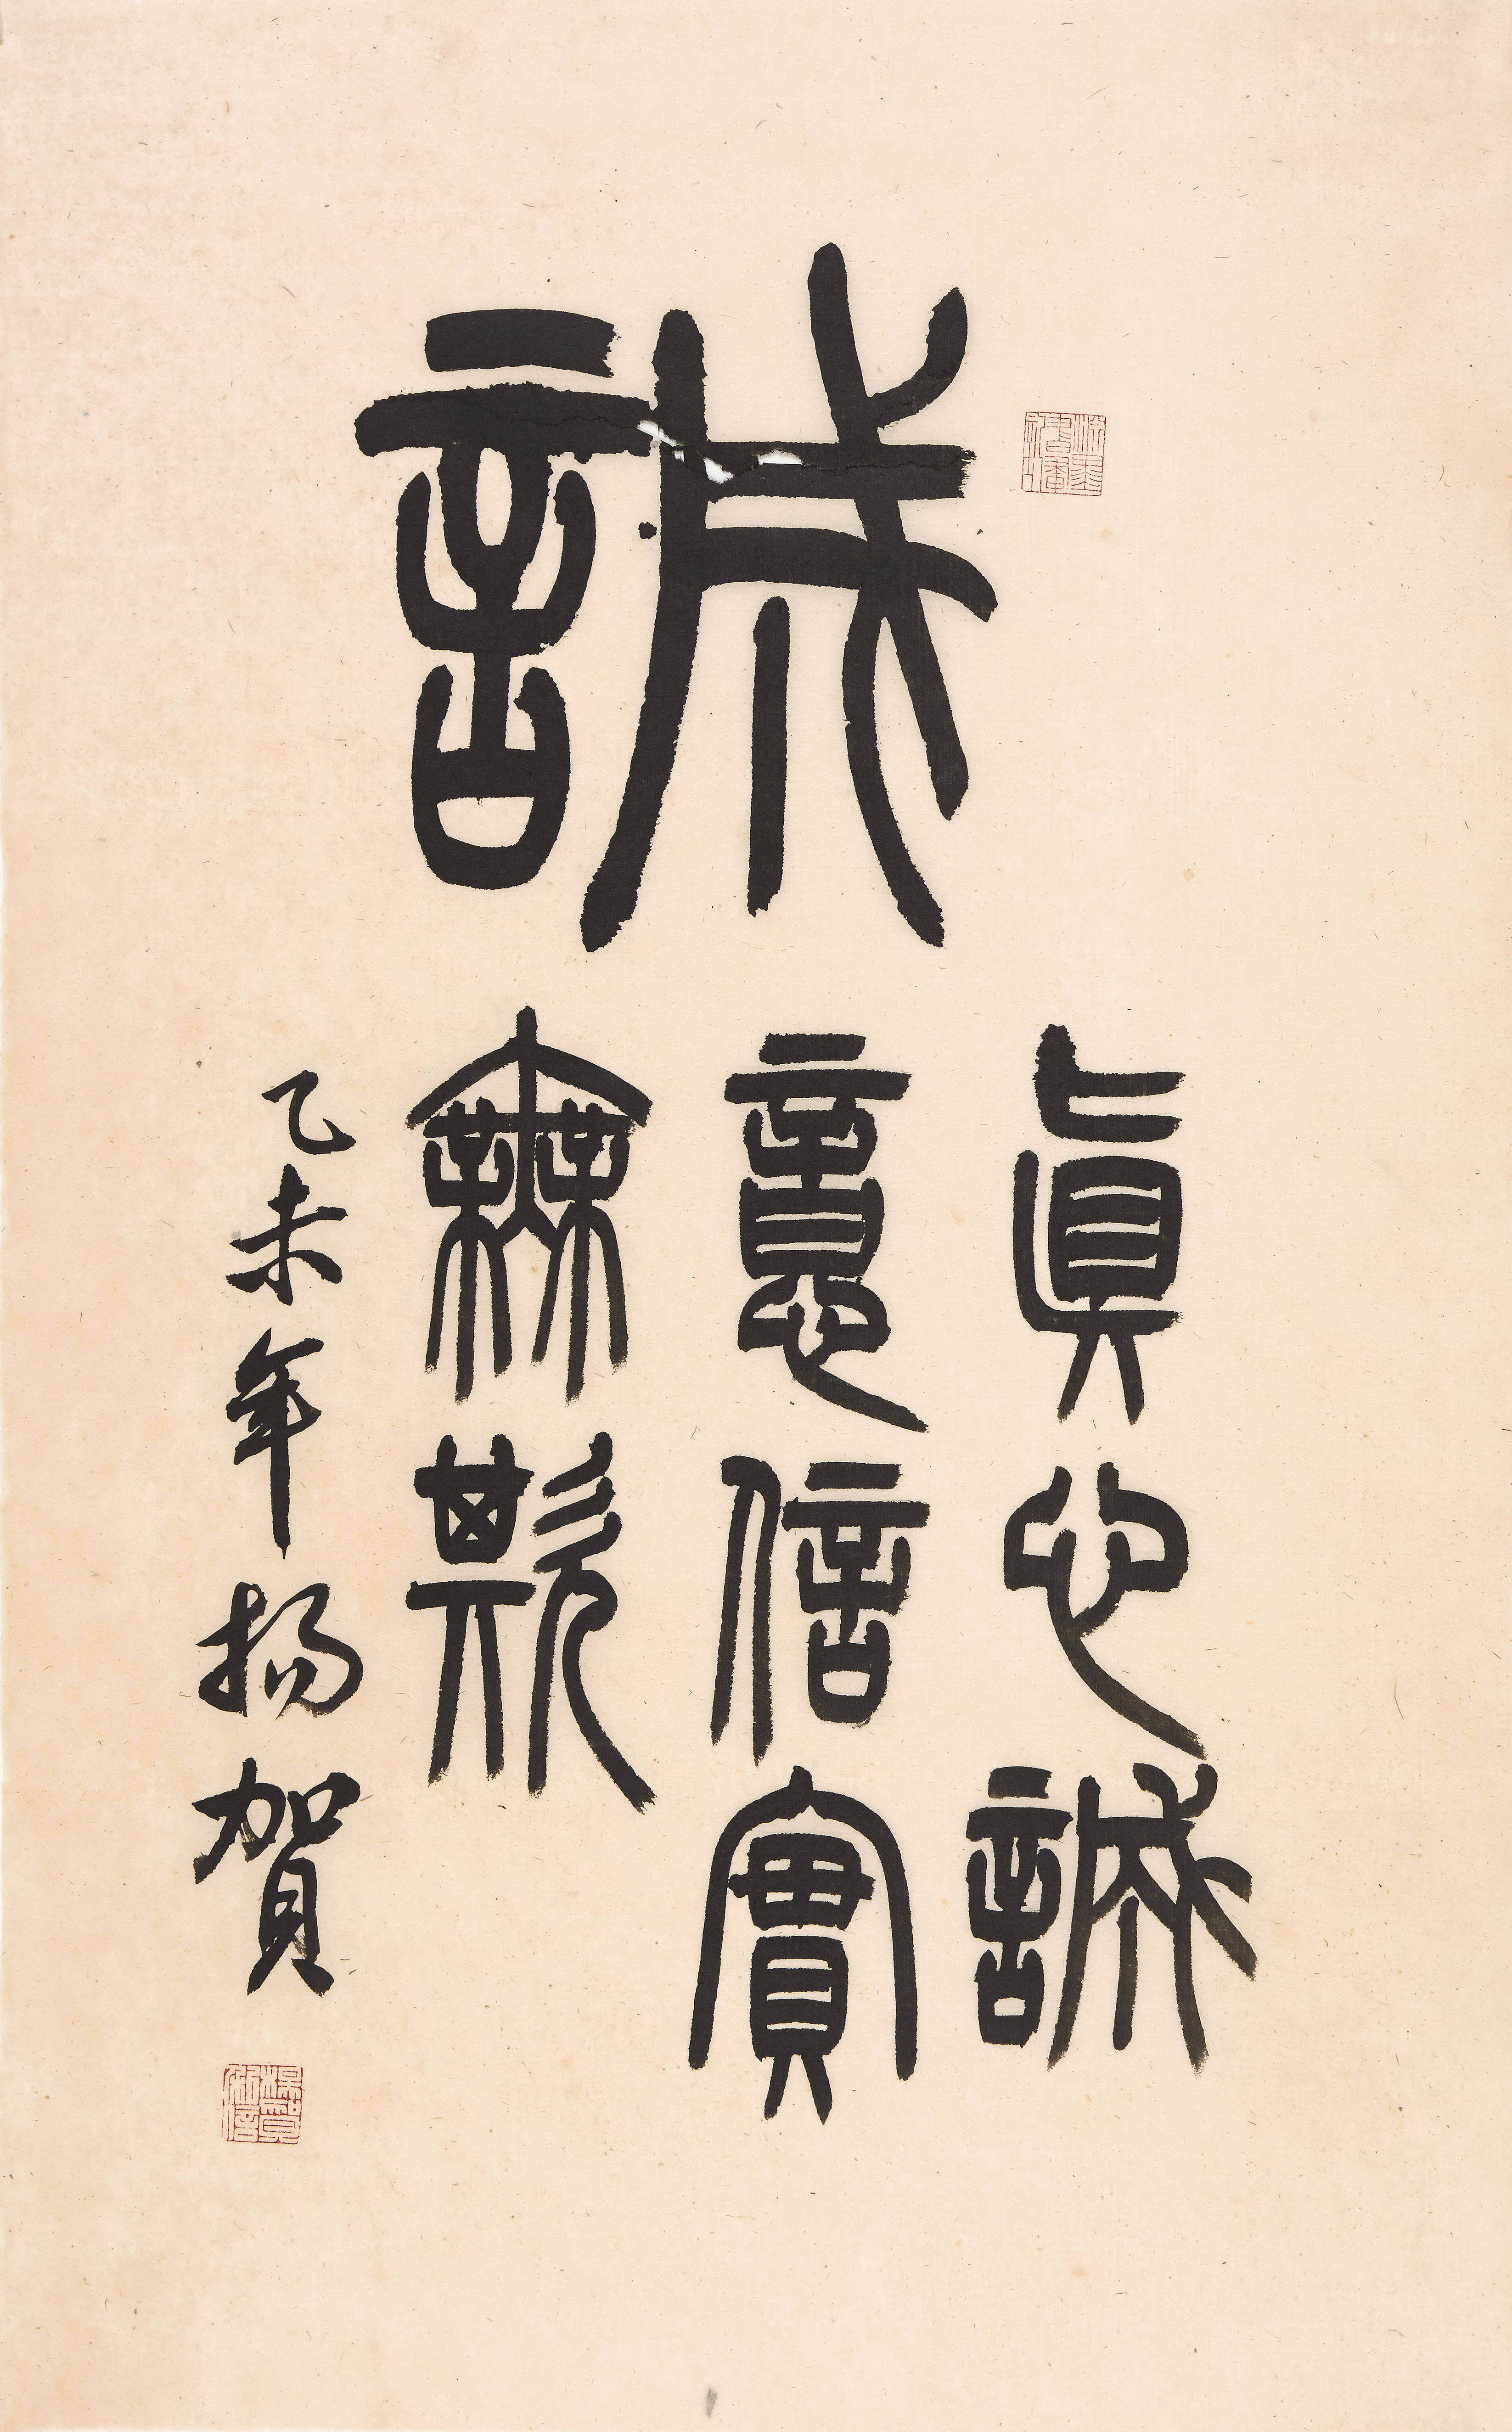 誠
眞心誠
意信實
無欺
乙未年揚賀